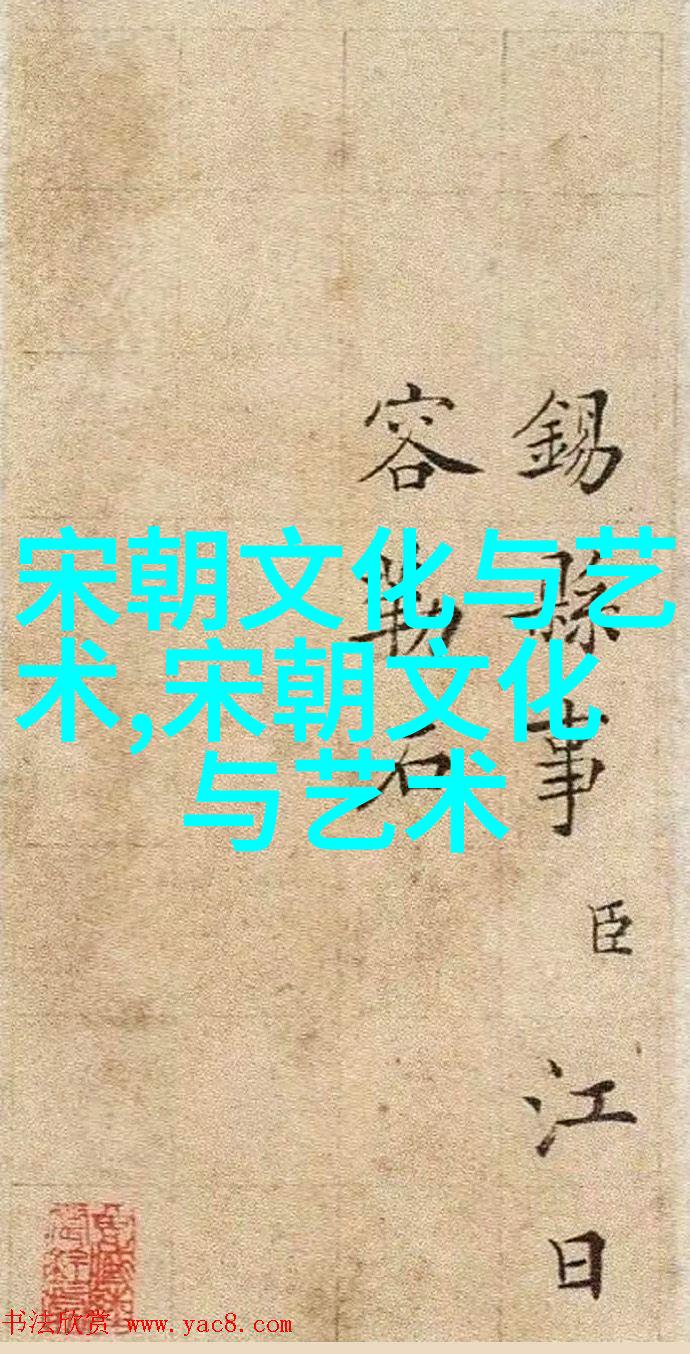 錫縣事臣江日
容勒石
宋朝文化与艺
术,宋朝文化
与艺术
书法欣赏 www.yac8.com